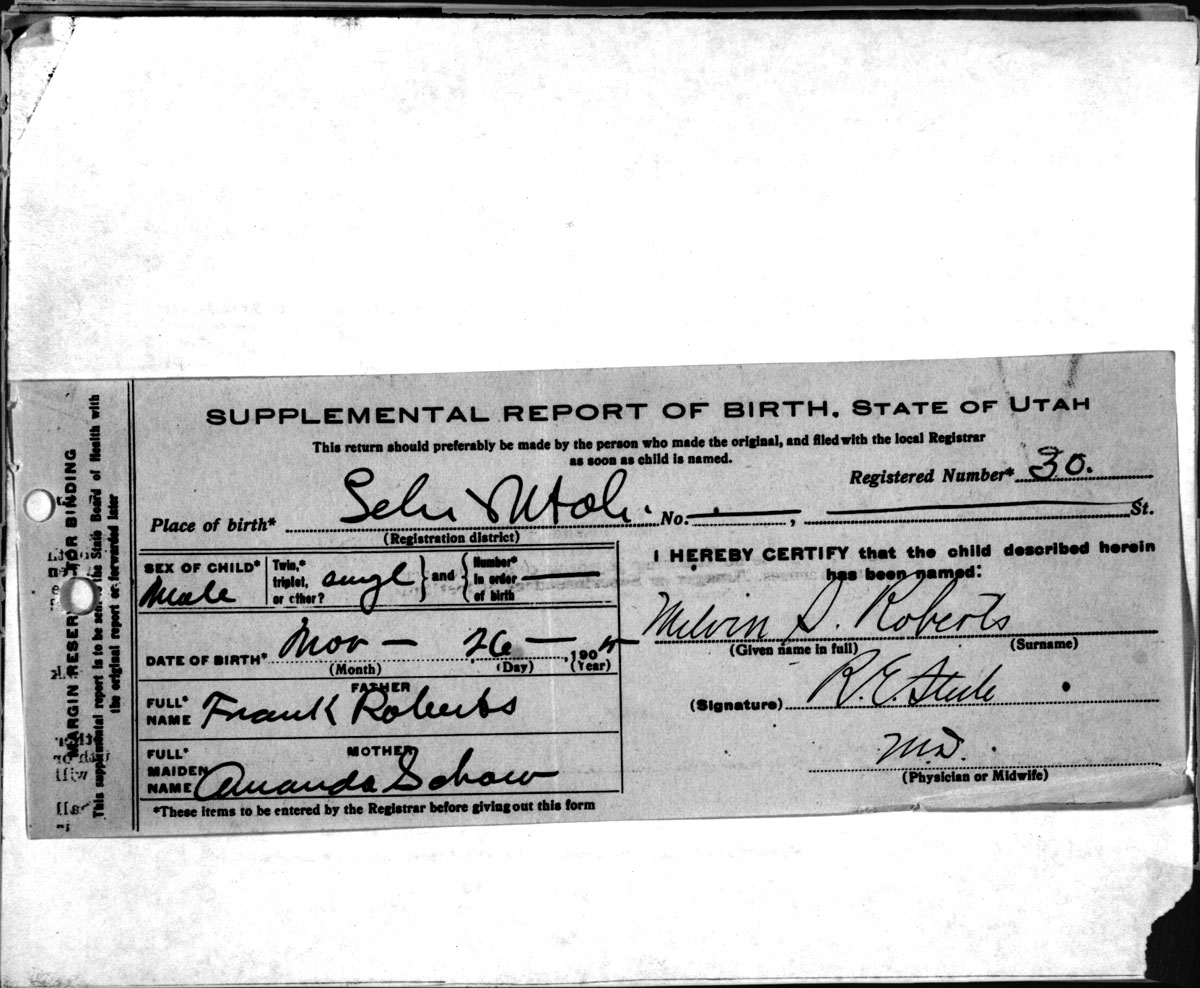 SUPPLEMENTAL REPORT OF BIRTH, STATE OF UTAH
This return should preferably be made by the person who made the original, and filed with the local Registrar
as soon as child is named.
Registered Number* 30.
Place of birth* Utah. No. , St.
(Registration district)
SEX OF CHILD* Male
Twin,* triplet, or other? singl } and { Number* in order of birth
DATE OF BIRTH* Nov - 26 - 190
(Month) (Day) (Year)
FATHER
FULL* NAME Frank Roberts
MOTHER
FULL* MAIDEN NAME Amanda Schow
*These items to be entered by the Registrar before giving out this form
I HEREBY CERTIFY that the child described herein
has been named:
Melvin S. Roberts
(Given name in full) (Surname)
(Signature) R. E. Steele
M.D.
(Physician or Midwife)
MARGIN RESERVED FOR BINDING
This supplemental report is to be sent to the State Board of Health with
the original report or forwarded later